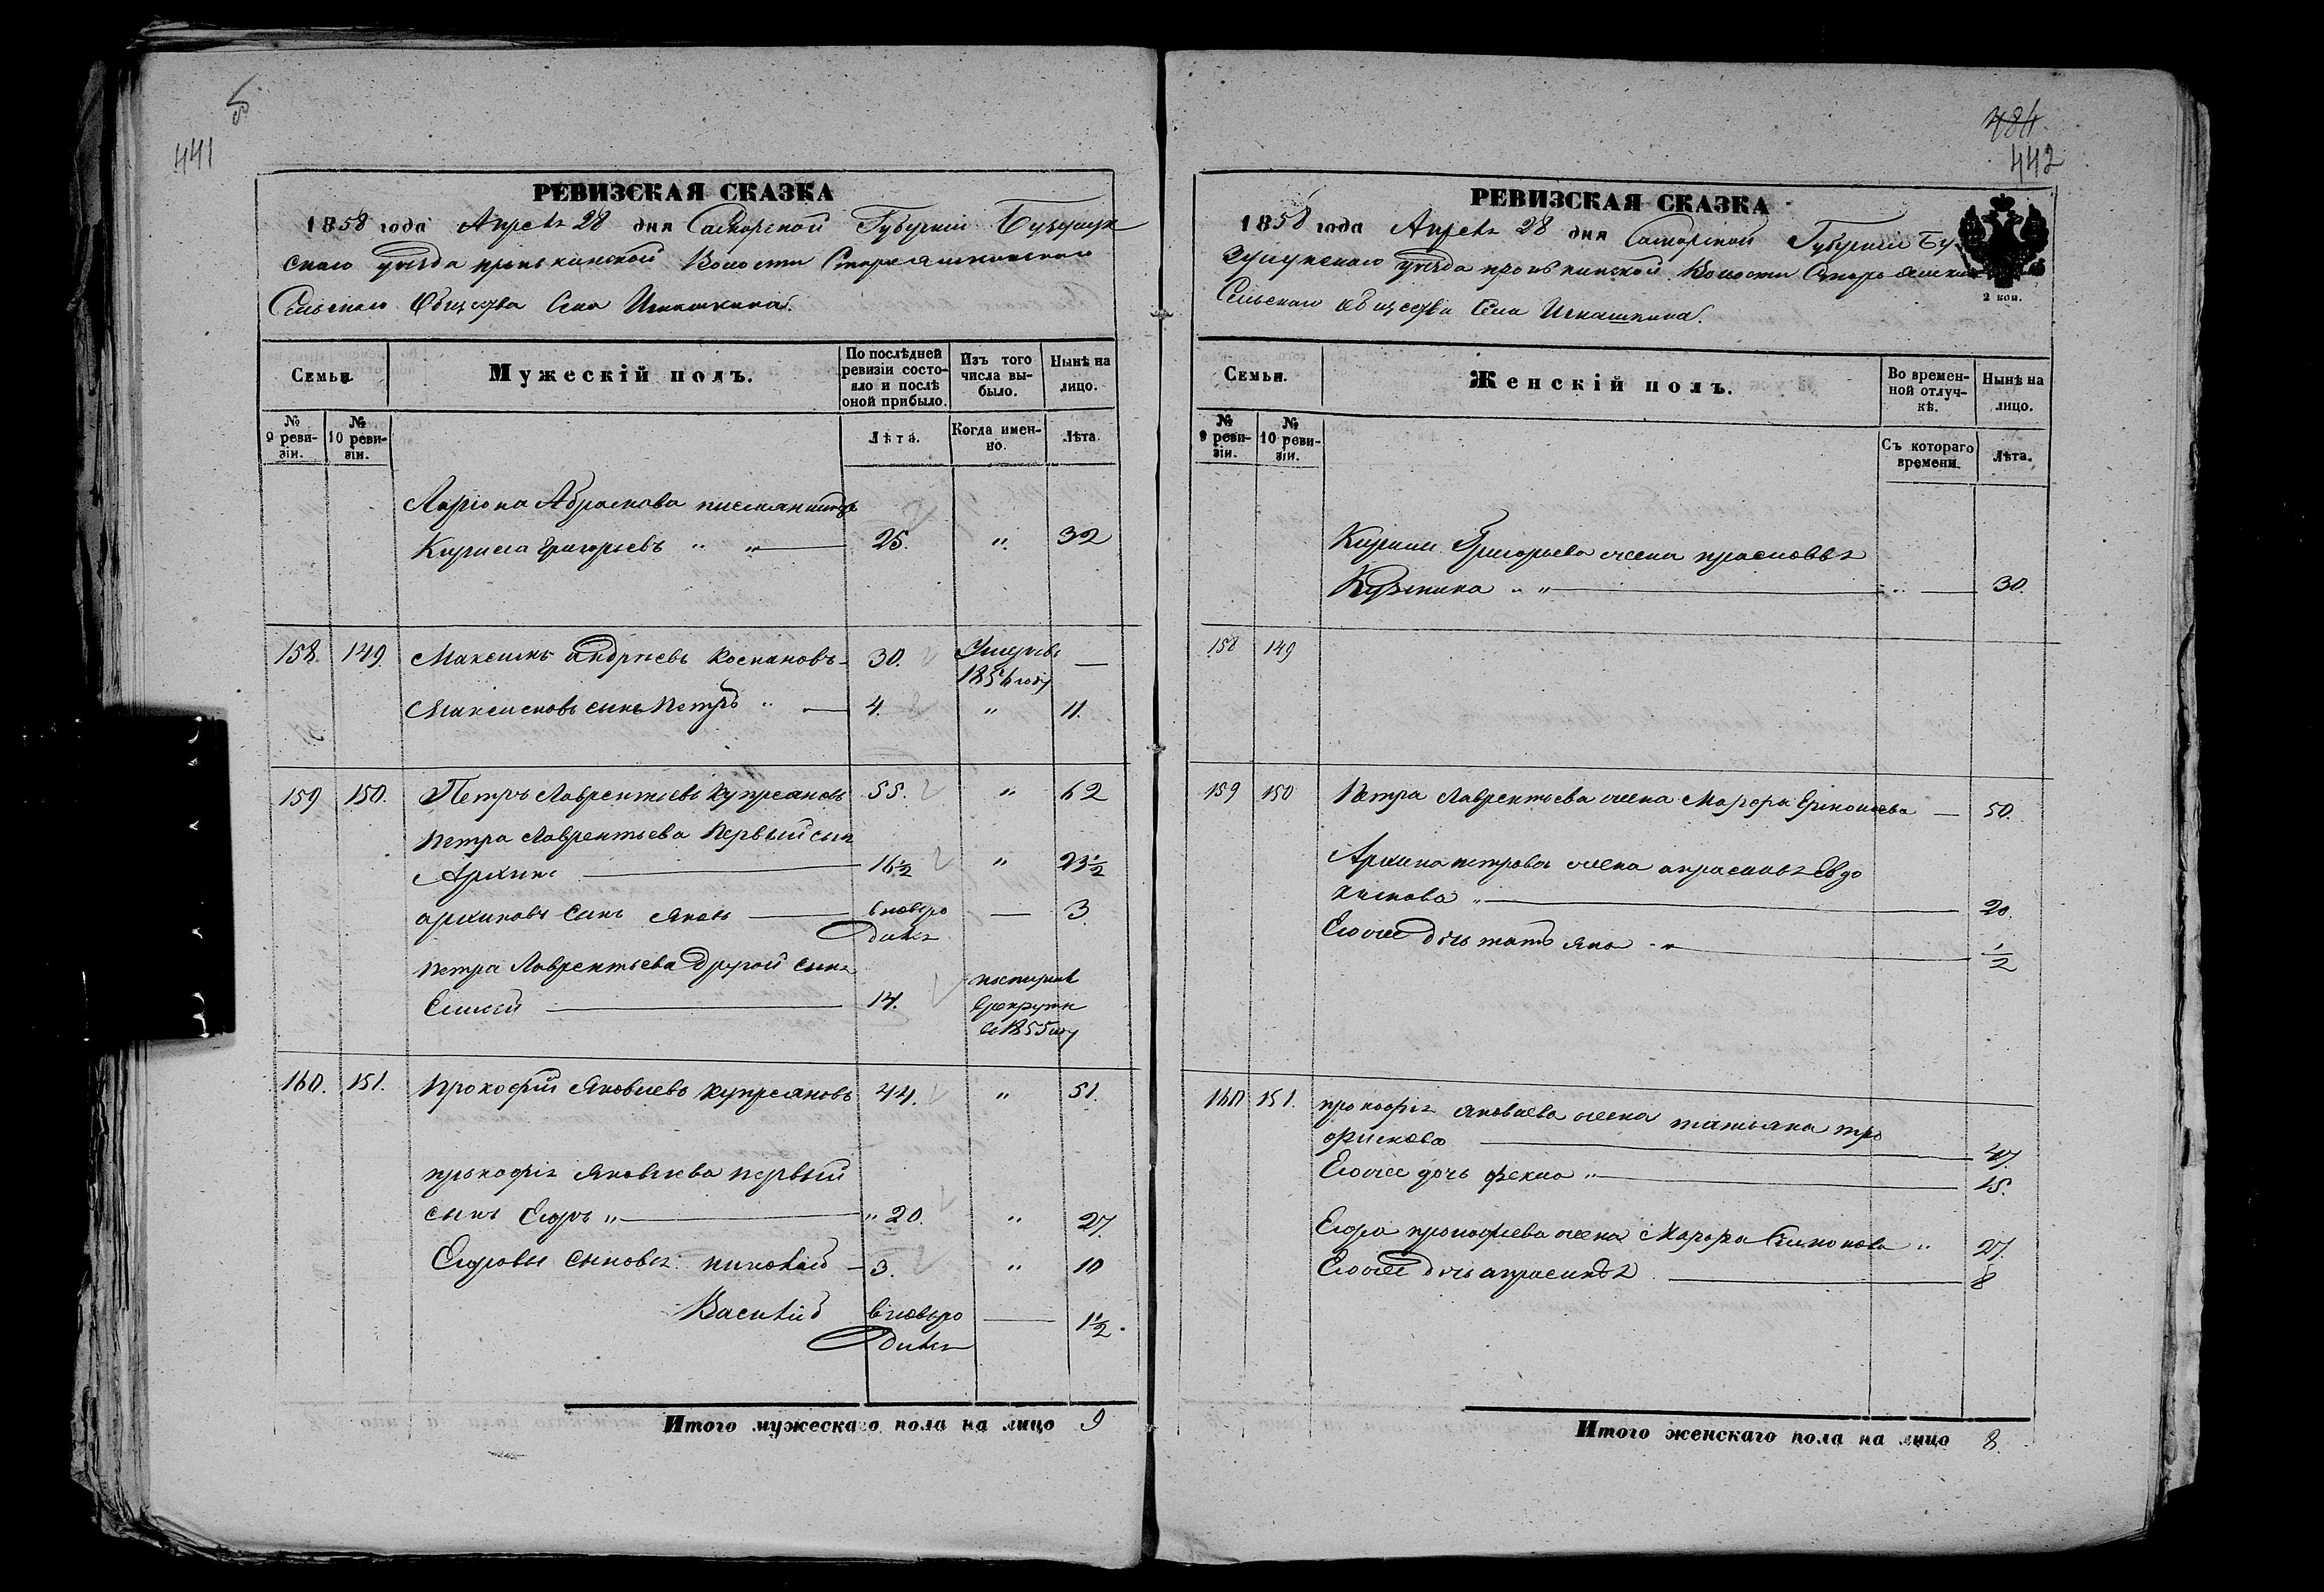 441
РЕВИЗСКАЯ СКАЗКА
1858 года Апреля 28 дня Самарской Губернии Бузулук
скаго уезда пронькинской Волости Старояшкинскаго
Сельскаго Общества Села Игнашкина.
Семьи.
Мужескій полъ.
По послѣдней ревизіи состояло и послѣ оной прибыло.
Изъ того числа выбыло.
Нынѣ на лицо.
№ 9 ревизіи.
№ 10 ревизіи.
Лѣта.
Когда именно.
Лѣта.
Лариона Абрамова племянникъ
Кирила Григорьевъ " " 25. " 32
158. 149. Максимъ андреевъ Коспановъ 30. Умеръ въ —
1856 году
Максимовъ сынъ Петръ " 4. " 11.
159 150. Петръ Лаврентьевъ купреяновъ 55. " 62
Петра Лаврентьева Первый сын
Архипъ 16½ " 23½
архиповъ Сынъ Яковъ вновьро — 3
дился
Петра Лаврентьева Другой Сынъ поступилъ
Елисей 14. в рекруты
въ 1855 году
160. 151. Прокофій Яковлевъ купреяновъ 44. " 51.
прокофія Яковлева первый
сынъ Егоръ " " 20. " 27.
Егоровы Сыновья: николай 3. " 10
Василій вновьро — 1½.
дился
Итого мужескаго пола на лицо 9
484
442
РЕВИЗСКАЯ СКАЗКА
1858 года Апреля 28 дня Самарской Губернии Бу
зулукскаго уезда пронькинской Волости Старояшкин
2 коп.
Сельскаго общества Села Игнашкина.
Семьи.
Женскій полъ.
Во временной отлучкѣ.
Нынѣ на лицо.
№ 9 ревизіи.
№ 10 ревизіи.
Съ котораго времени.
Лѣта.
Кирилы Григорьева жена прасковья
Кузмина " " " 30.
158 149
159 150 Петра Лаврентьева жена Марфа Ермолаева — 50.
Архипа петрова жена апросинья Евдо
кимова " 20.
Егоже дочь татьяна " ½
160 151. прокофія Яковлева жена татьяна тро
фимова 47.
Егоже дочь фекла " 15.
Егора прокофьева жена Марфа Симонова " 27.
Егоже дочь апросинья 8
Итого женскаго пола на лицо 8.